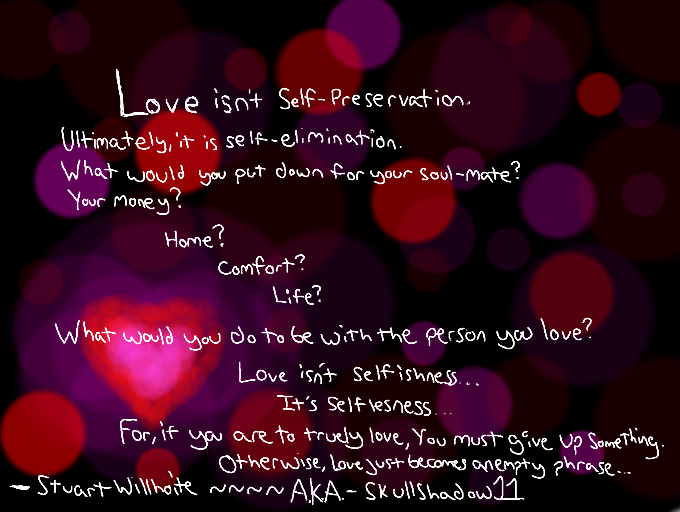 Love isn't Self-Preservation.
Ultimately, it is self-elimination.
What would you put down for your soul-mate?
Your Money?
Home?
Comfort?
Life?
What would you do to be with the person you love?
Love isn't selfishness...
It's Selflesness...
For, if you are to truely love, You must give up Something.
Otherwise, Love just becomes an empty phrase...
- Stuart Willhoite ~~~~ A.K.A. - SkullShadow11